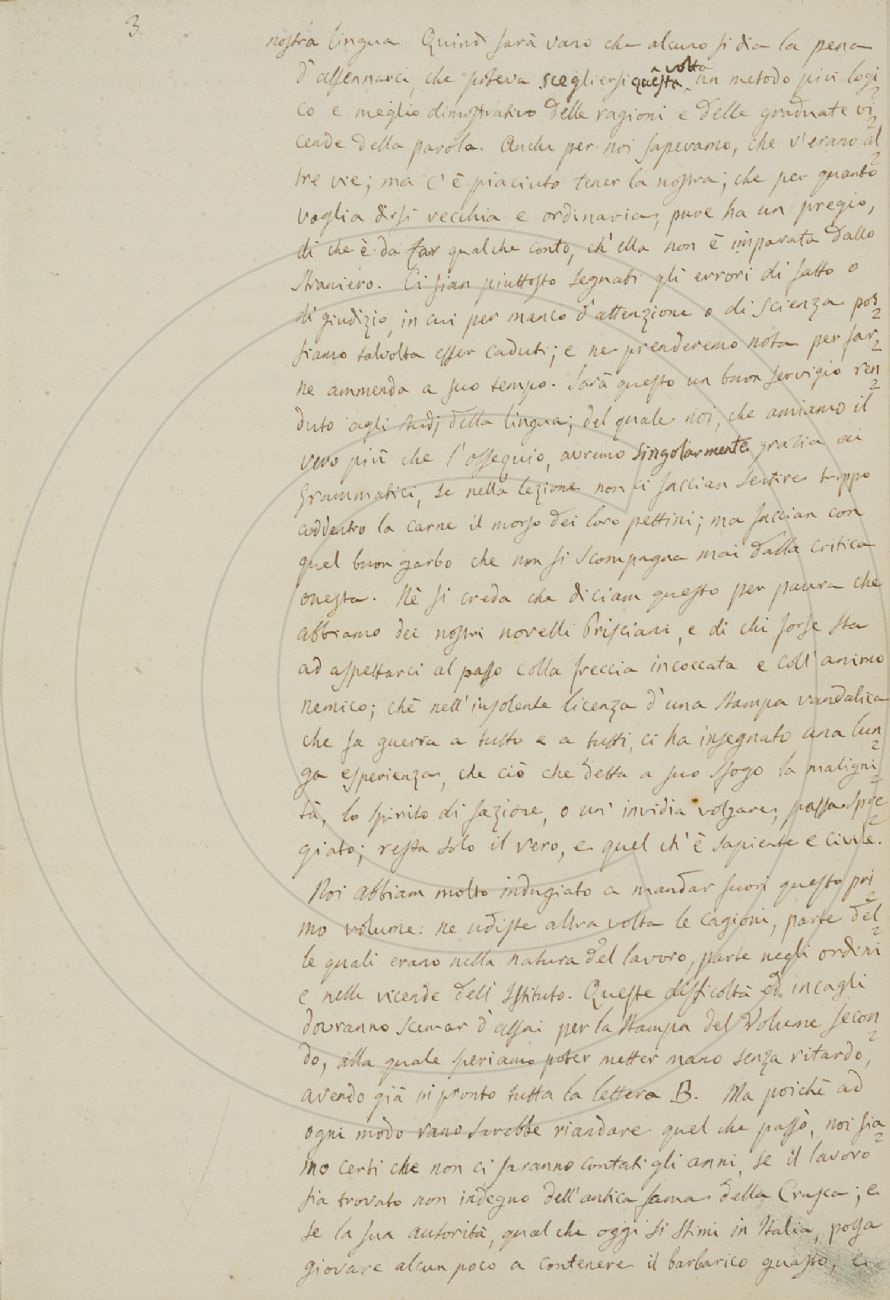 3.
nostra lingua. Quindi sarà vano che alcuno si dia la pena
d'assennarci, che poteva scegliersi questa volta un metodo più logi=
co e meglio dimostrativo delle ragioni e delle graduate vi=
cende della parola. Anche per noi sapevamo, che v'erano al=
tre vie; ma c'è piaciuto tener la nostra; che per quanto
voglia dirsi vecchia e ordinaria, pure ha un pregio,
di che è da far qualche conto, ch'ella non è imparata dallo
straniero. Ci sian piuttosto segnati gli errori di fatto o
di giudizio, in cui per manco d'attenzione o di scienza pos=
siamo talvolta esser caduti; e ne prenderemo nota per far=
ne ammenda a suo tempo. Sarà questo un buon servigio ren=
duto agli studj della lingua; del quale noi, che amiamo il
vero più che l'ossequio, avremo singolarmente grazia ai
grammatici, se nella lezione non ci faccian sentire troppo
addentro la carne il morso dei loro pettini; ma faccian con
quel buon garbo che non si scompagna mai dalla critica
onesta. Nè si creda che diciam questo per paura che
abbiamo dei nostri novelli Prisciani, e di chi forse sta
ad aspettarci al passo colla freccia incoccata e coll'animo
nemico; chè nell'insolente licenza d'una stampa vandalica
che fa guerra a tutto e a tutti, ci ha insegnato una lun=
ga esperienza, che ciò che detta a suo sfogo la maligni=
tà, lo spirito di fazione, o un'invidia volgare, passa spre=
giato; resta solo il vero, e quel ch'è sapiente e civile.
Noi abbiam molto indugiato a mandar fuori questo pri=
mo volume: ne udiste altra volta le cagioni, parte del=
le quali erano nella natura del lavoro, parte negli ordini
e nelle vicende dell'Istituto. Queste difficoltà ed incagli
dovranno scemar d'assai per la stampa del Volume secon=
do, alla quale speriamo poter metter mano senza ritardo,
avendo già in pronto tutta la lettera B. Ma poichè ad
ogni modo vano sarebbe riandare quel che passò, noi sia=
mo certi che non ci saranno contati gli anni, se il lavoro
sia trovato non indegno dell'antica fama della Crusca; e
se la sua autorità, qual che oggi si stimi in Italia, possa
giovare alcun poco a contenere il barbarico guasto, e